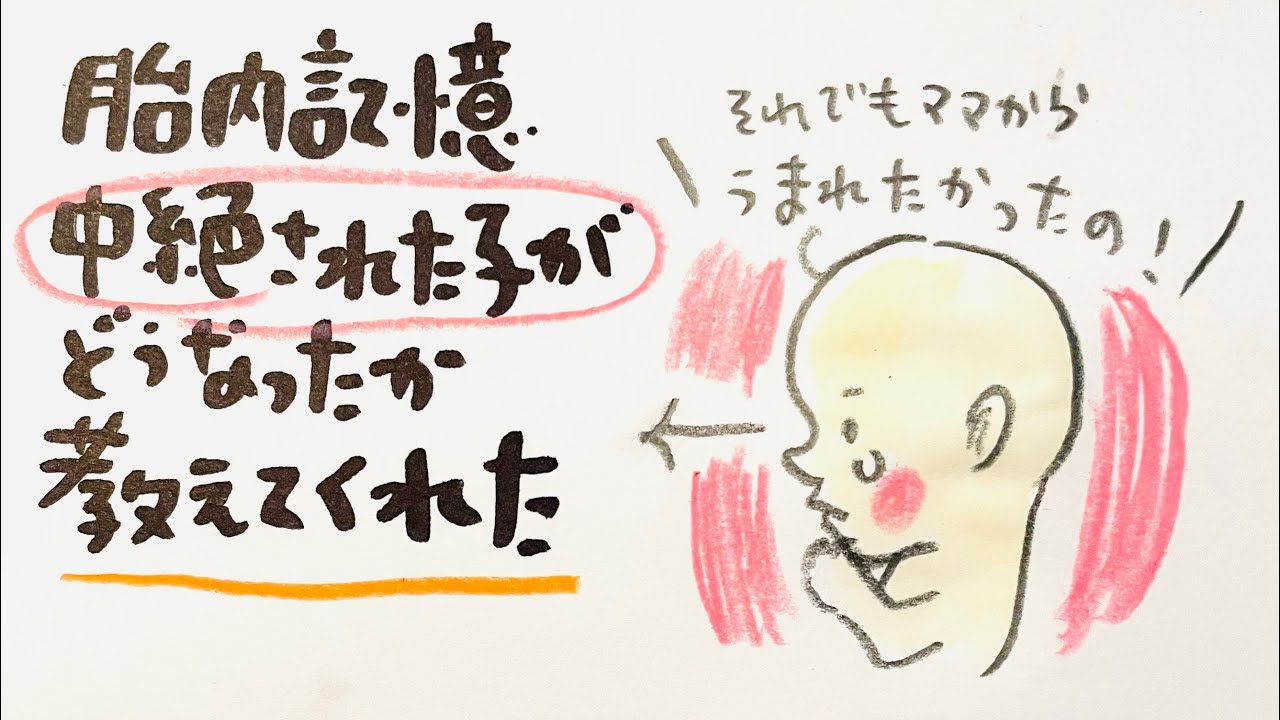 胎内記憶
中絶された子が
どうなったか
教えてくれた
それでもママから
うまれたかったの!